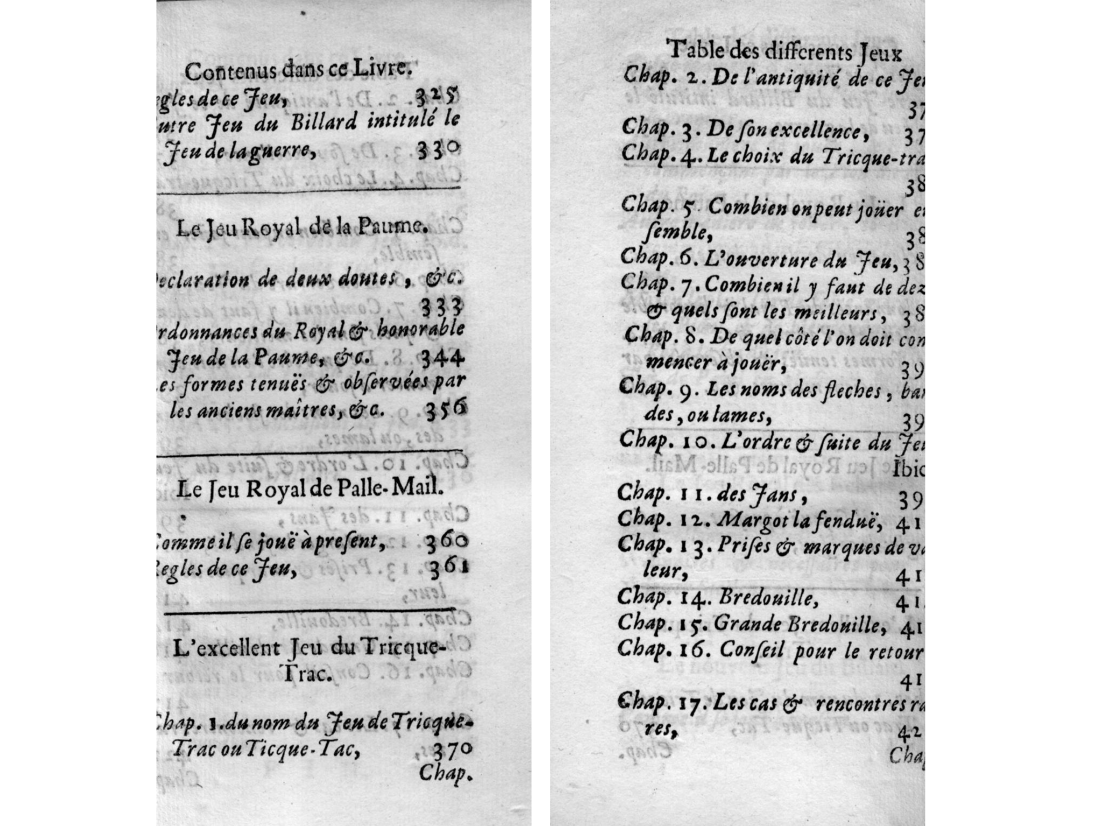 Contenus dans ce Livre.
egles de ce Jeu, 325
utre Jeu du Billard intitulé le
Jeu de la guerre, 330
Le Jeu Royal de la Paume.
eclaration de deux doutes, &c.
333
rdonnances du Royal & honorable
Jeu de la Paume, &c. 344
es formes tenuës & obſervées par
les anciens maîtres, &c. 356
Le Jeu Royal de Palle-Mail.
Comme il ſe jouë à preſent, 360
Regles de ce Jeu, 361
L'excellent Jeu du Tricque-
Trac.
Chap. 1. du nom du Jeu de Tricque-
Trac ou Ticque-Tac, 370
Chap.
Table des differents Jeux
Chap. 2. De l'antiquité de ce Jeu
37
Chap. 3. De ſon excellence, 37
Chap. 4. Le choix du Tricque-tra
38
Chap. 5. Combien on peut joüer e
ſemble, 38
Chap. 6. L'ouverture du Jeu, 38
Chap. 7. Combien il y faut de dez
& quels ſont les meilleurs, 38
Chap. 8. De quel côté l'on doit com
mencer à jouër, 39
Chap. 9. Les noms des fleches, ban
des, ou lames, 39
Chap. 10. L'ordre & ſuite du Jeu
Ibid
Chap. 11. des Jans, 39
Chap. 12. Margot la fenduë, 41
Chap. 13. Priſes & marques de va
leur, 41
Chap. 14. Bredouille, 41
Chap. 15. Grande Bredouille, 41
Chap. 16. Conſeil pour le retour
41
Chap. 17. Les cas & rencontres ra
res, 42
Chap